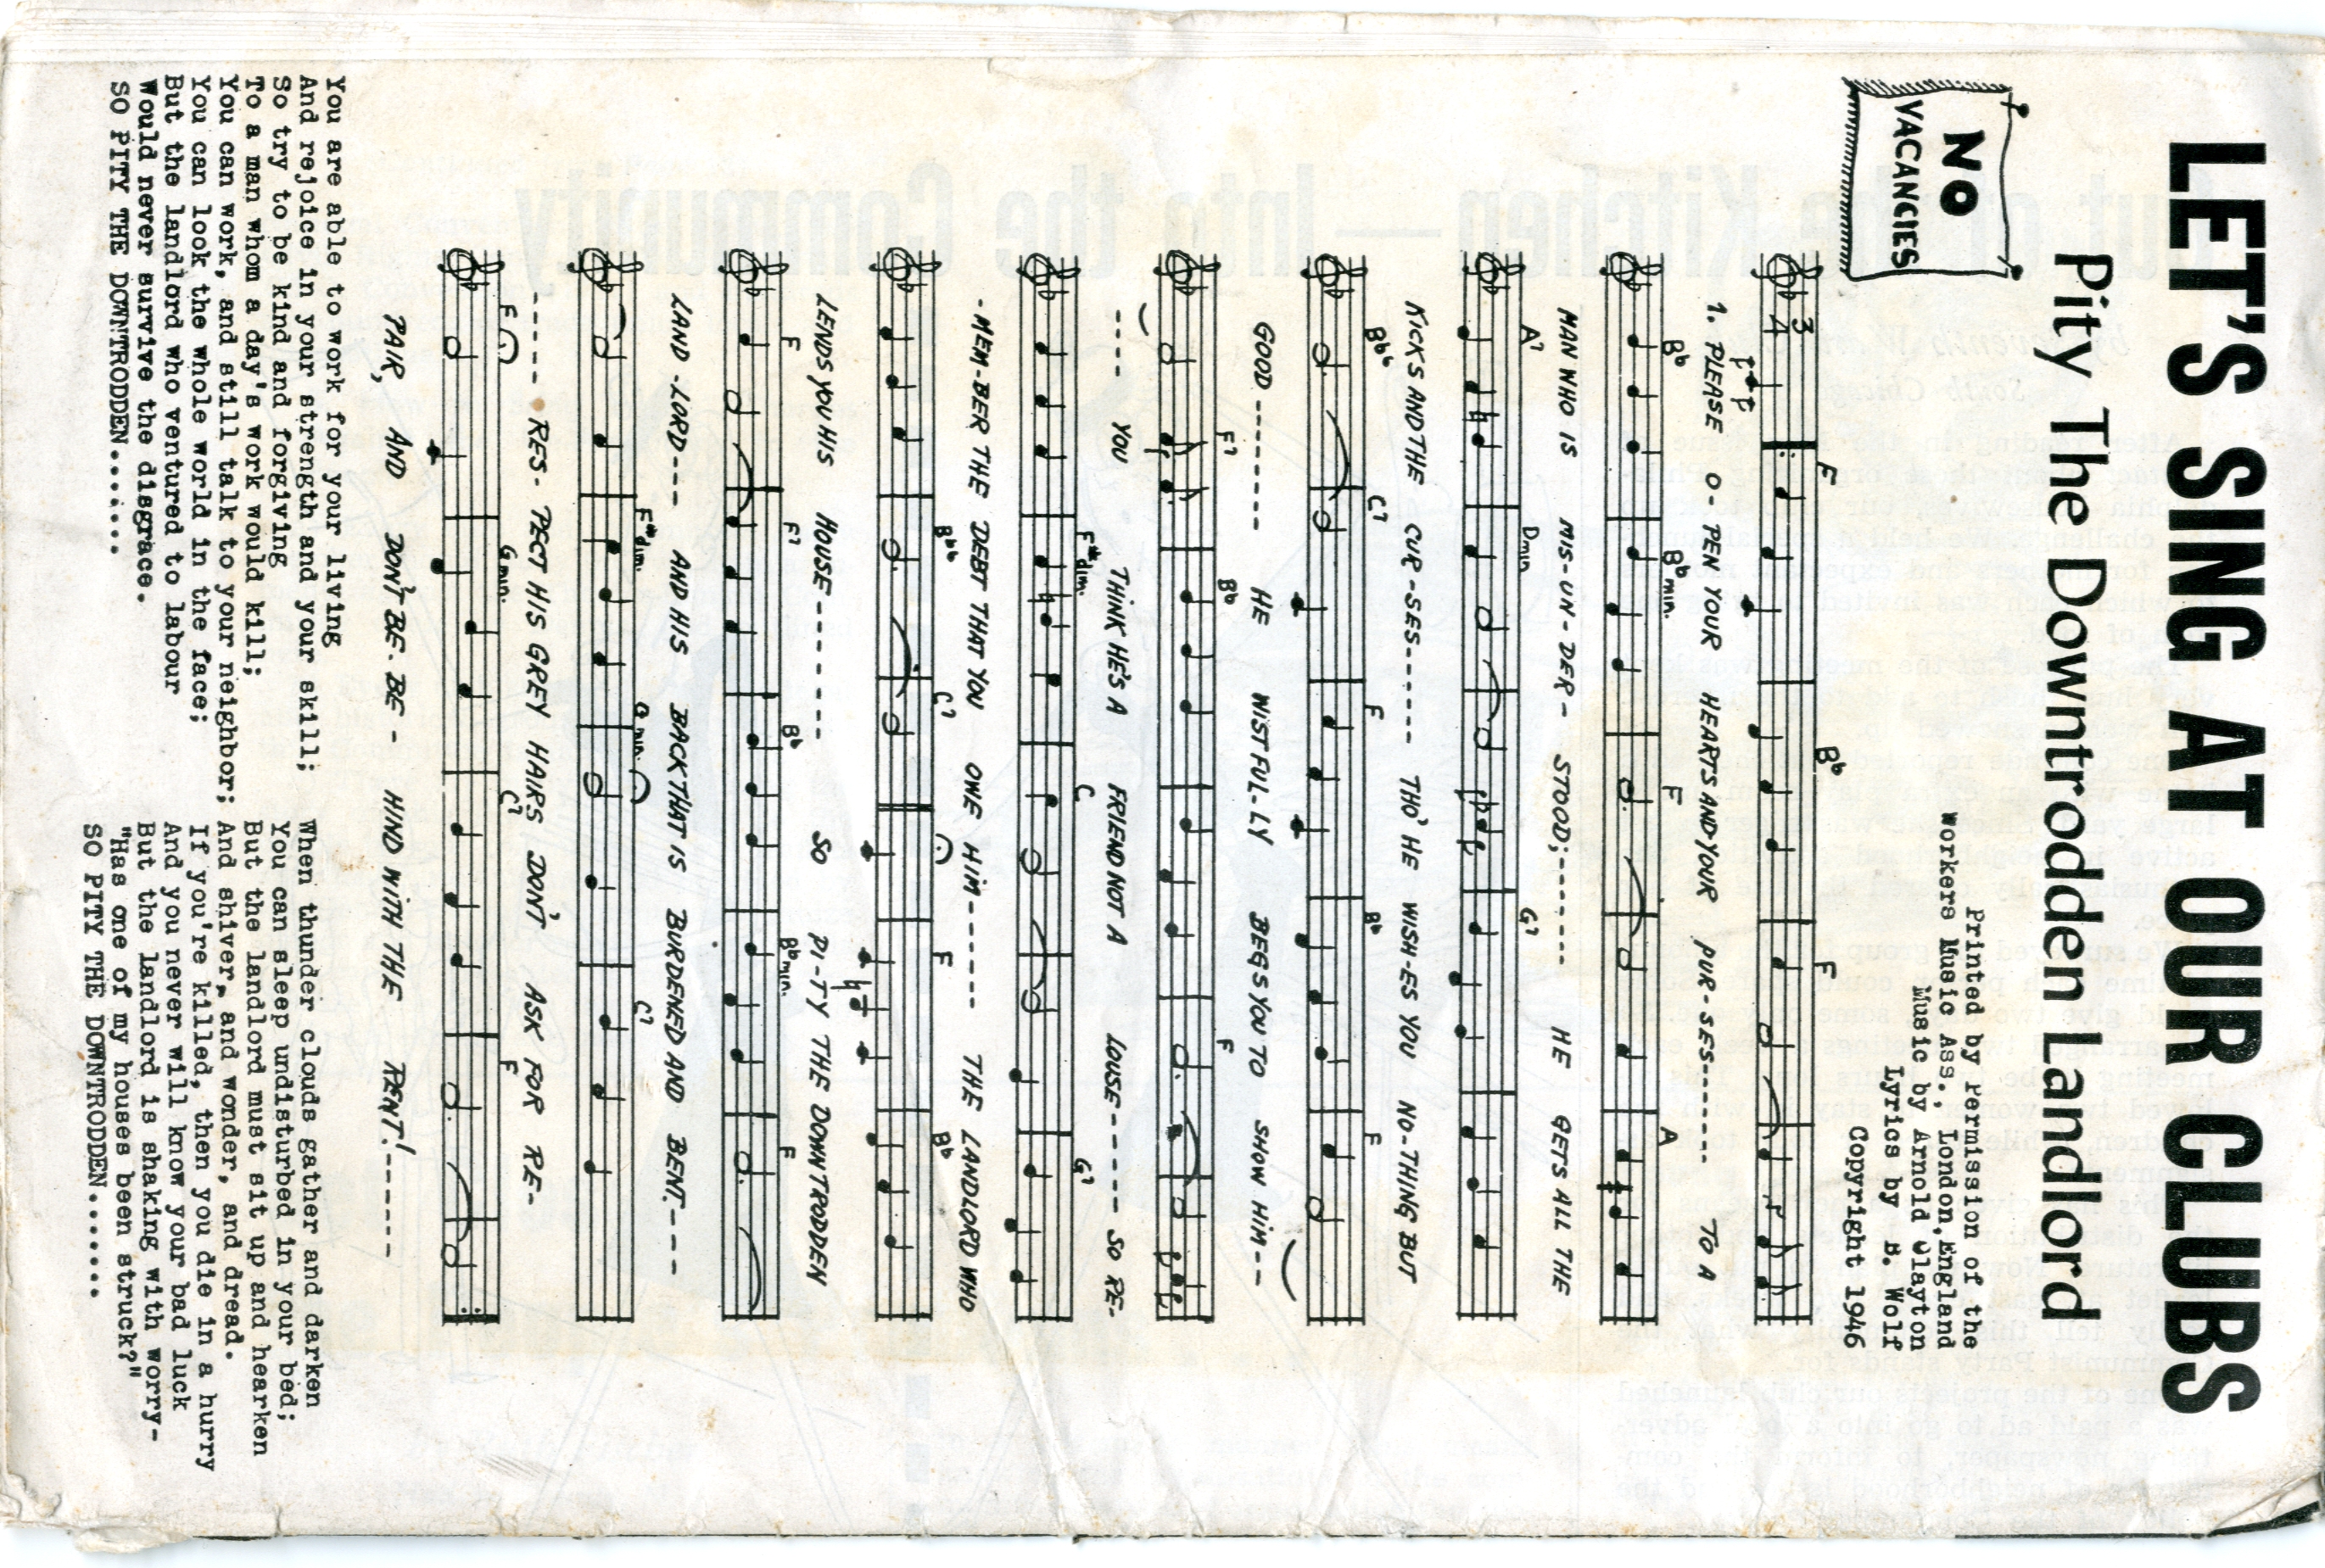 LET'S SING AT OUR CLUBS
Pity The Downtrodden Landlord
NO
VACANCIES
Printed by Permission of the
Workers Music Ass., London, England
Music by Arnold Clayton
Lyrics by B. Wolf
Copyright 1946
3
4
F B♭ F
1. PLEASE O- PEN YOUR HEARTS AND YOUR PUR-SES------- TO A
B♭ B♭min. F A
MAN WHO IS MIS-UN-DER- STOOD;------- HE GETS ALL THE
A7 Dmin G7
KICKS AND THE CUR-SES------ THO' HE WISH-ES YOU NO-THING BUT
B♭6 C7 F B♭ F
GOOD------- HE WISTFUL-LY BEGS YOU TO SHOW HIM--
F7 B♭ F
---- YOU THINK HE'S A FRIEND NOT A LOUSE----- SO RE-
F#dim. C G7
-MEM-BER THE DEBT THAT YOU OWE HIM------- THE LANDLORD WHO
B♭6 C7 F B♭
LENDS YOU HIS HOUSE-------- SO PI-TY THE DOWNTRODDEN
F F7 B♭ B♭min. F
LAND-LORD--- AND HIS BACK THAT IS BURDENED AND BENT.----
F#dim. Gmin. C7
----- RES- PECT HIS GREY HAIRS DON'T ASK FOR RE-
F Gmin. C7 F
PAIR, AND DON'T BE. BE- HIND WITH THE RENT!-----
You are able to work for your living
And rejoice in your strength and your skill;
So try to be kind and forgiving
To a man whom a day's work would kill;
You can work, and still talk to your neighbor;
You can look the whole world in the face;
But the landlord who ventured to labour
Would never survive the disgrace.
SO PITY THE DOWNTRODDEN.......
When thunder clouds gather and darken
You can sleep undisturbed in your bed;
But the landlord must sit up and hearken
And shiver, and wonder, and dread.
If you're killed, then you die in a hurry
And you never will know your bad luck
But the landlord is shaking with worry-
"Has one of my houses been struck?"
SO PITY THE DOWNTRODDEN.......